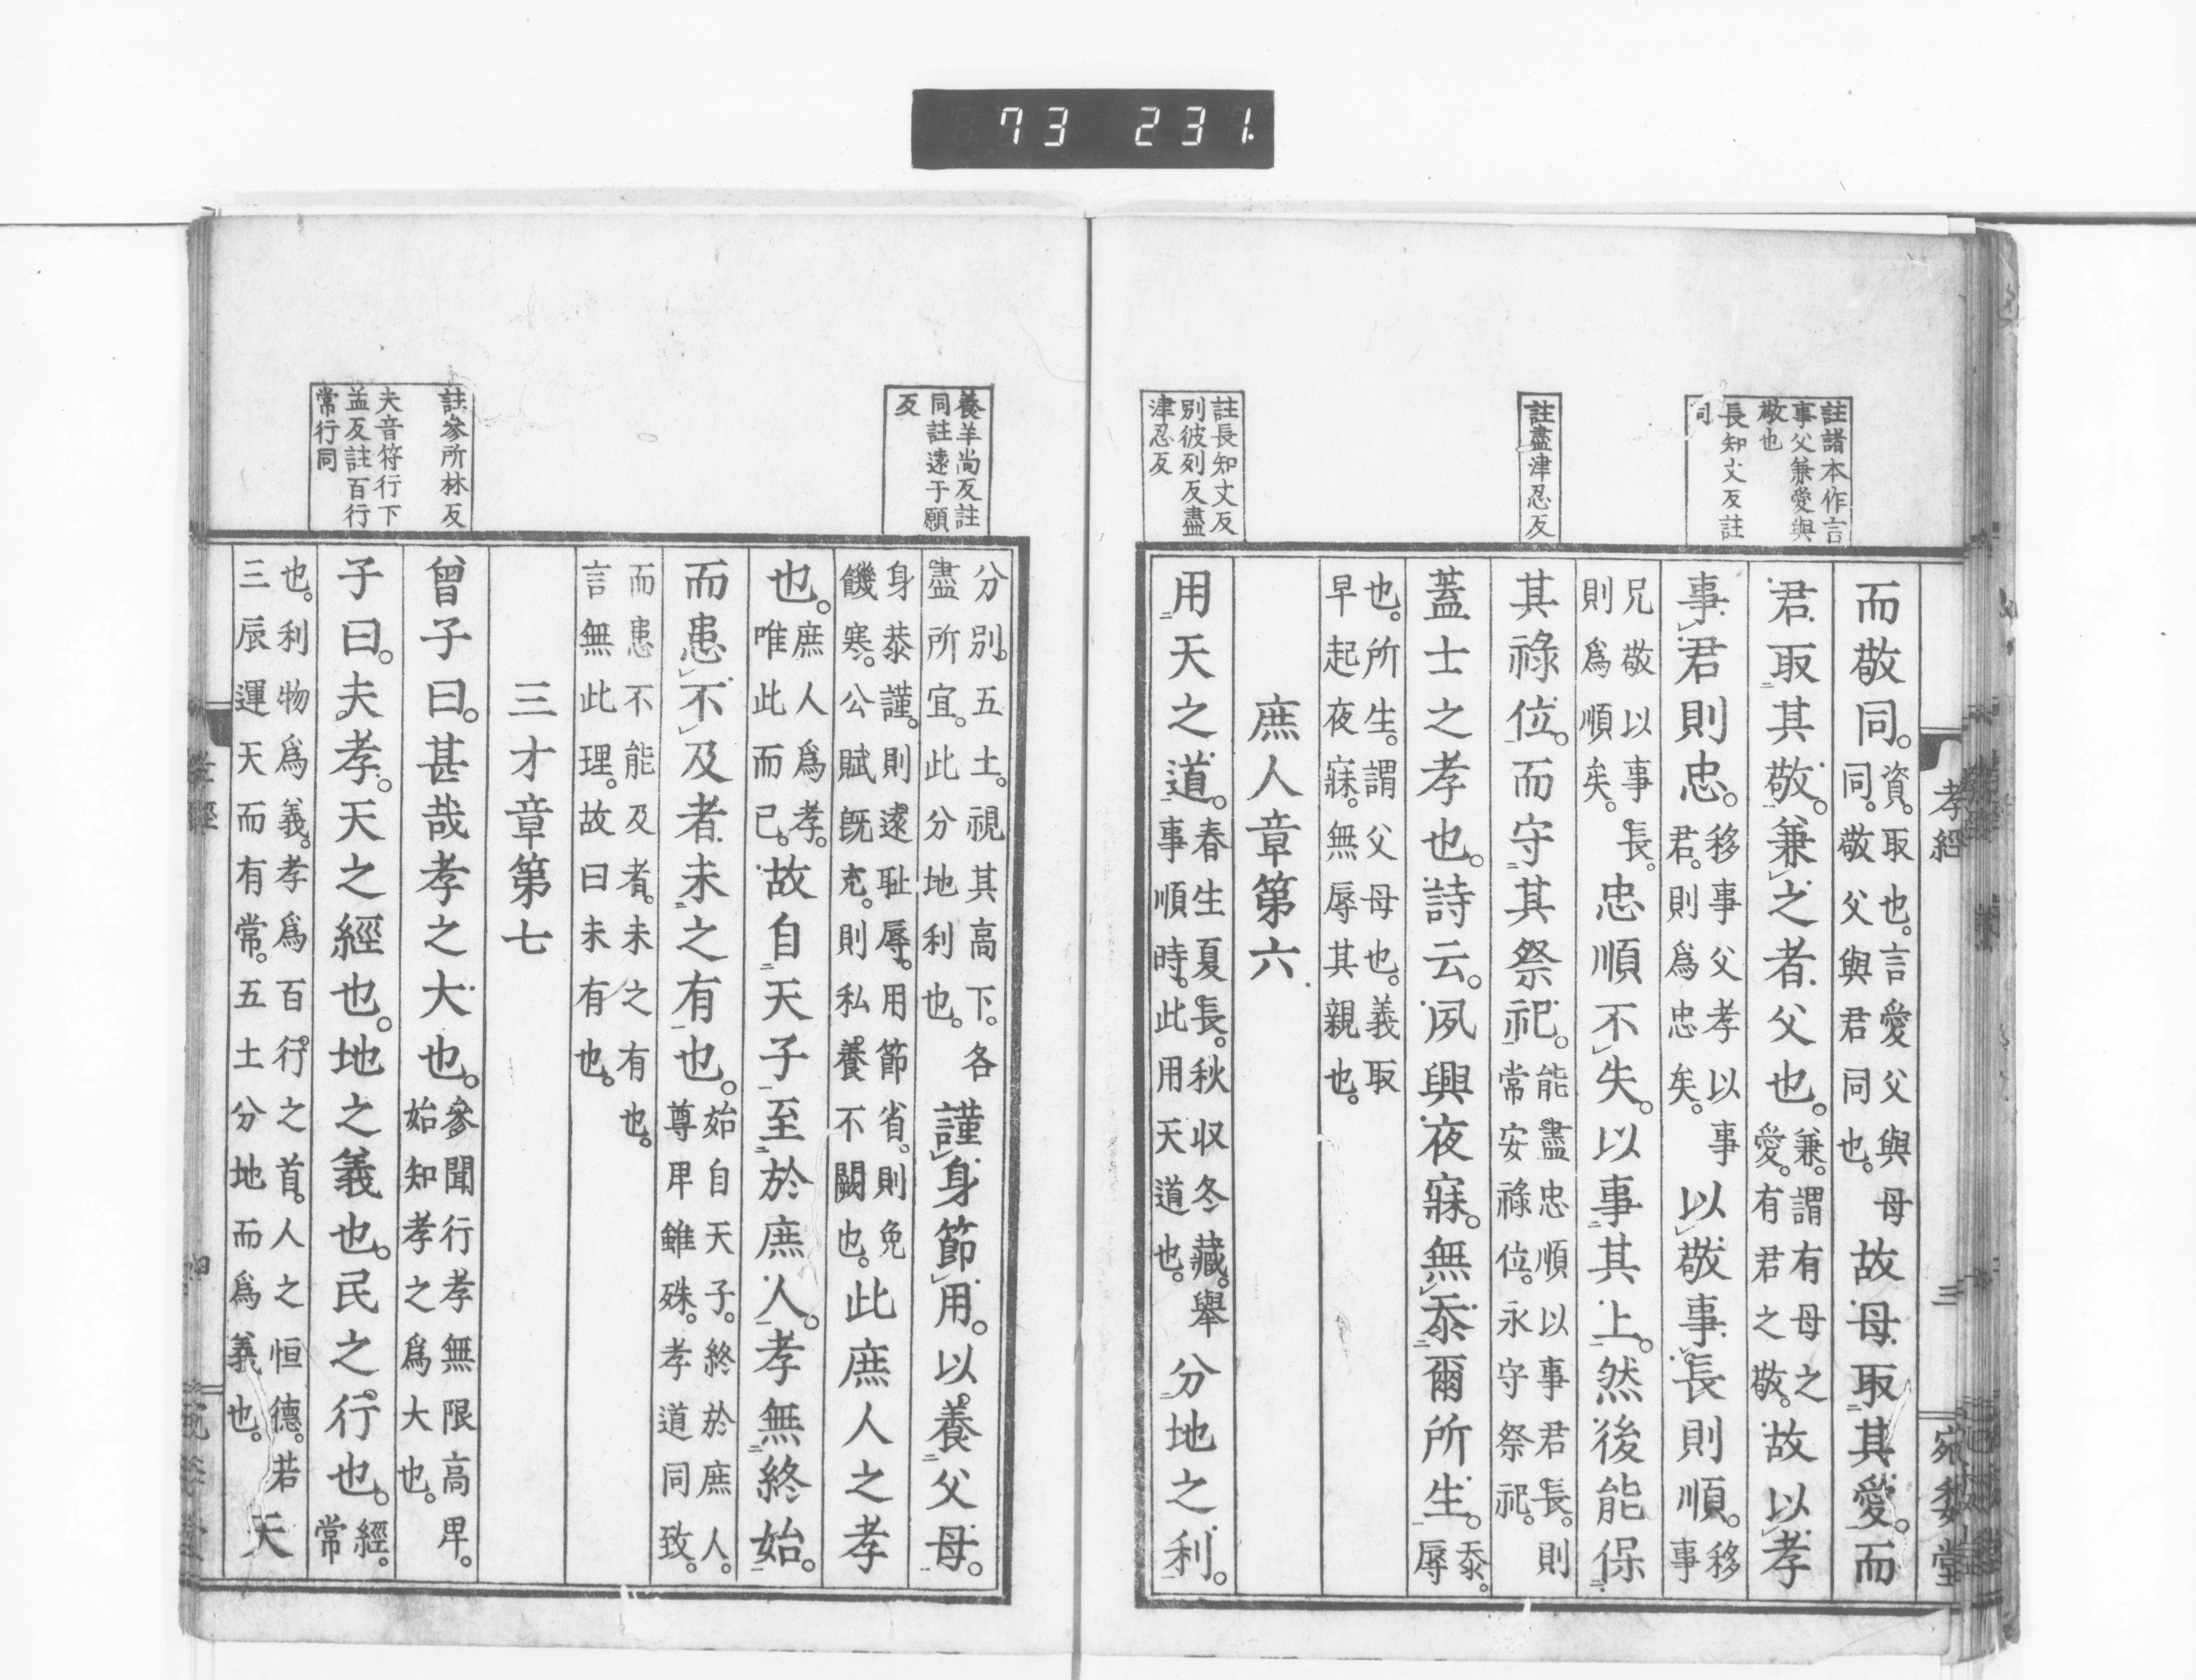 73 231.
註諸本作言
事父兼愛與
敬也
長知丈反註
同
註盡津忍反
註長知丈反
別彼列反盡
津忍反
孝經 三 宛委堂
而敬同。資。取也。言愛父與母同。敬父與君同也。故母取其愛。而
君取其敬。兼之者父也。兼。謂有母之愛。有君之敬。故以孝
事君則忠。移事父孝以事君。則爲忠矣。以敬事長則順。移事
兄敬以事長。則爲順矣。忠順不失。以事其上。然後能保
其祿位。而守其祭祀。能盡忠順以事君長。則常安祿位。永守祭祀。
蓋士之孝也。詩云。夙興夜寐。無忝爾所生。忝。辱
也。所生。謂父母也。義取早起夜寐。無辱其親也。
庶人章第六
用天之道。春生夏長。秋収冬藏。舉事順時。此用天道也。分地之利。
養羊尚反註
同註遠于願
反
註參所林反
夫音符行下
孟反註百行
常行同
分別五土。視其高下。各盡所宜。此分地利也。謹身節用。以養父母。
身恭謹。則遠耻辱。用節省。則免饑寒。公賦既充。則私養不闕也。此庶人之孝
也。庶人爲孝。唯此而已。故自天子至於庶人。孝無終始。
而患不及者。未之有也。始自天子。終於庶人。尊卑雖殊。孝道同致。
而患不能及者。未之有也。言無此理。故曰未有也。
三才章第七
曾子曰。甚哉孝之大也。參聞行孝無限高卑。始知孝之爲大也。
子曰。夫孝。天之經也。地之義也。民之行也。經。常
也。利物爲義。孝爲百行之首。人之恒德。若三辰運天而有常。五土分地而爲義也。天